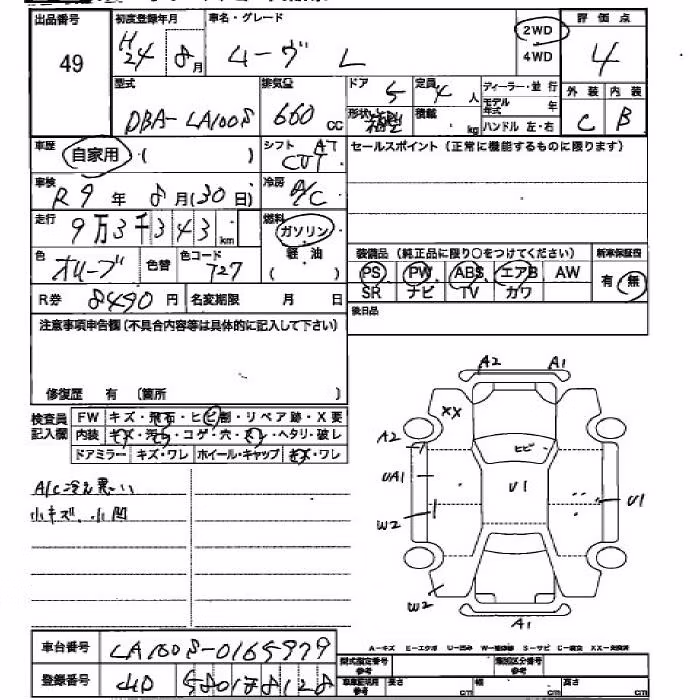 出品番号 初度登録年月 車名・グレード 2WD 4WD 評価点
49 H24 8月 ムーヴ L 4
型式 排気量 ドア 5 定員 4人 ディーラー・並行 外装 内装
DBA-LA100S 660cc 形状 箱型 積載 kg モデル年式 年 ハンドル 左・右 C B
車歴 自家用・( ) シフト AT CVT セールスポイント (正常に機能するものに限ります)
車検 R9年 8月(30日) 冷房 A/C
走行 9万3千343km 燃料 ガソリン 軽油 ( )
色 オリーブ 色替 色コード T27
装備品 (純正品に限り○をつけてください) 新車保証書
PS PW ABS エアB AW 有・無
SR ナビ TV カワ
R券 8490円 名変期限 月 日
後日品
注意事項申告欄(不具合内容等は具体的に記入して下さい)
修復歴 有 〔箇所 〕
検査員記入欄 FW キズ・飛石・ヒビ割・リペア跡・X要
内装 キズ・汚れ・コゲ・穴・スレ・ヘタリ・破レ
ドアミラー キズ・ワレ ホイール・キャップ キズ・ワレ
A/C冷え悪い
小キズ、小凹
A2 A1
XX
A2 ヒビ
UA1 U1 U1
W2
W2
A1
A-キズ E-エクボ U-凹み W-補修跡 S-サビ C-腐食 XX-交換済
車台番号 LA100S-0165979
型式指定番号 参考 類別区分番号 参考
登録番号 580 8128
車庫証明用 参考 長さ cm 幅 cm 高さ cm